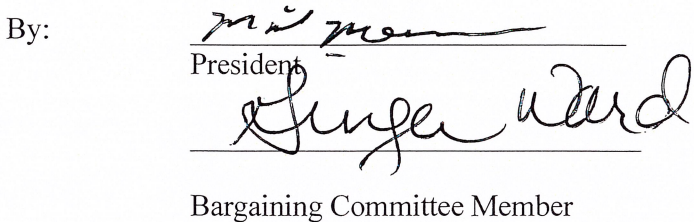 By:
President
Ginger Ward
Bargaining Committee Member